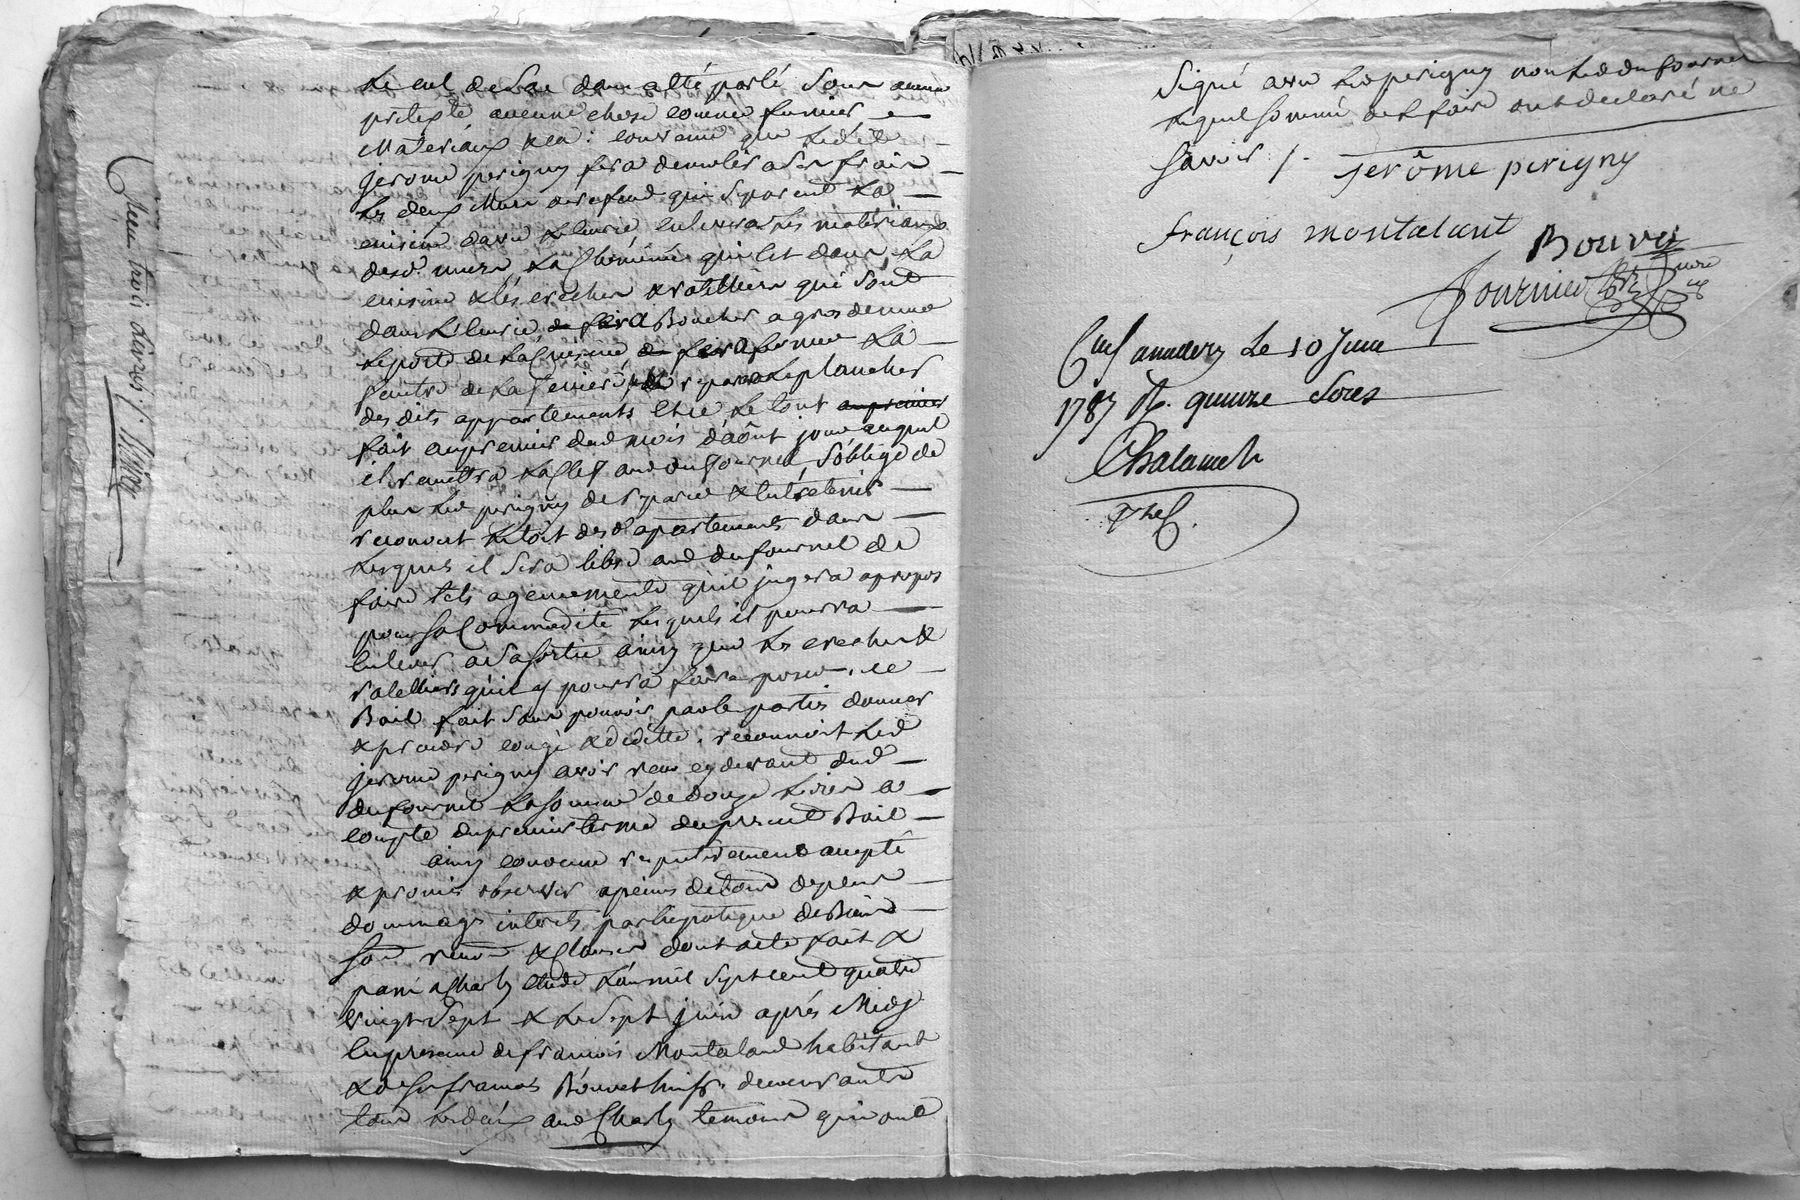 Le cul de sac dans alté parlé sous aucun
pretexte aucune chose comme fumier
Materiaux &ca : convenu que ledit
jerome perigny fera demolir a ses frais
les deux Murs de refend qui separent La
cuisine davec Lecurie enlevera les materiaux
desd. murs, La Chéminée qui est dans La
cuisine & les creches & rateliers qui sont
dans Lecurie fera Boucher
Leporte de La Cuisine fera fermer La
fenetre de La reparer Le plancher
des dits appartements Et ce Le tout
fait aupremier dud mois d'aôut jour auquel
il remettra La Clef aud dufournel, s'oblige de
plus Led perigny de reparer & Entretenir
recouvert Le toit desd apartements dans
Lesquels il sera libre aud dufournel de
faire tels agencements quil jugera apropos
pour sa Commodité Lesquels il pourra
Enlever a sa sortie ainsy que Les creches &
ratelliers quil y pourra faire poser, ce
Bail fait sans pouvoir par les parties donner
& prendre congé & deditte. reconnoit Led
jerome perigny avoir reçu cy devant dud
dufournel La somme de douze Livres a
compte du premier terme du present Bail
ainsy convenu respectivement accepté
& promis observer a peines de tous depens
dommages interets par hipotique de Biens
Soud renond & Clauses dont acte fait &
passé a Charly Etude L'an mil sept cent quatre
vingt sept & Le sept juin aprés Midy
En presence de francois Montaland habitant
& de Sr francois Bouvet huissr. demeurants
tous Les deux aud Charly temoins qui ont
signé avec Led perigny non Led dufournel
Lequel sommé de le faire ont declaré ne
savoir /.
jerôme perigny
françois montalant
Bouvet
fournier
Con annders Le 10 Juin
1787 R. quinze sols
Chalamel